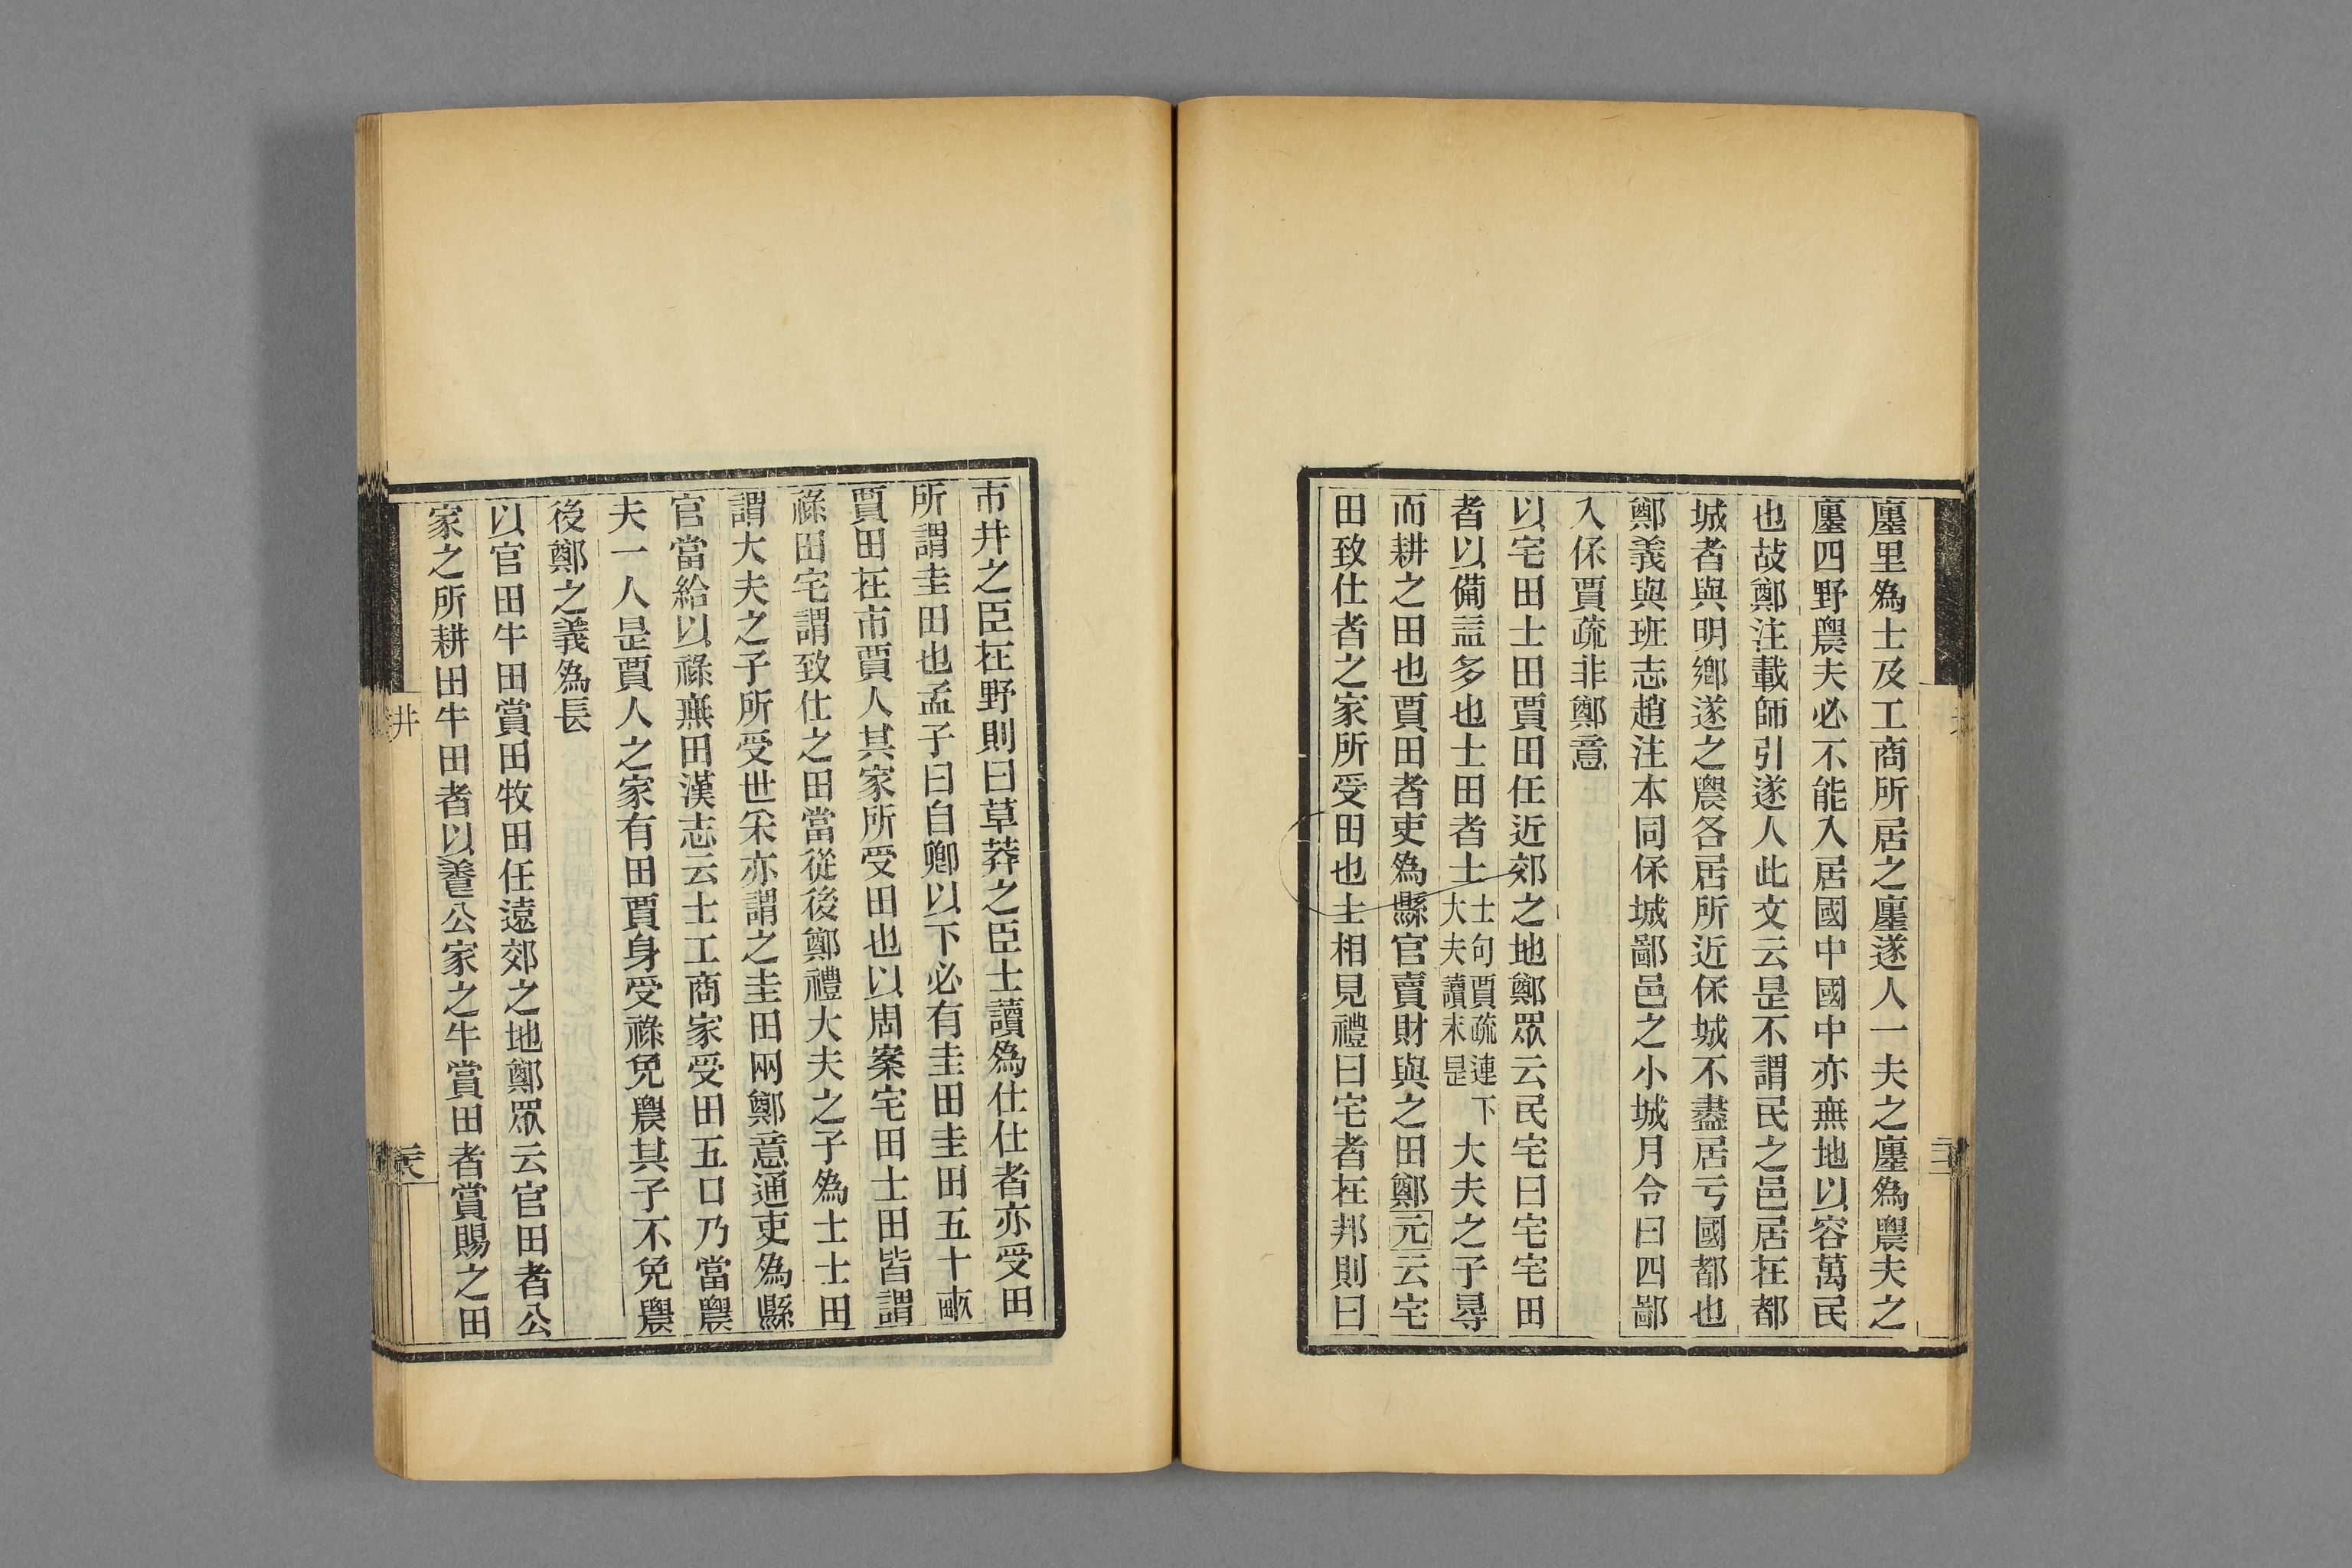 廛里為士及工商所居之廛遂人一夫之廛為農夫之
廛四野農夫必不能入居國中國中亦無地以容萬民
也故鄭注載師引遂人此文云是不謂民之邑居在都
城者與明鄉遂之農各居所近保城不盡居亏國都也
鄭義與班志趙注本同保城鄙邑之小城月令曰四鄙
入保賈疏非鄭意
以宅田士田賈田任近郊之地鄭眾云民宅曰宅宅田
者以備益多也士田者士士句賈疏連下大夫讀未是大夫之子尋
而耕之田也賈田者吏為縣官賣財與之田鄭元云宅
田致仕者之家所受田也士相見禮曰宅者在邦則曰
市井之臣在野則曰草莽之臣士讀為仕仕者亦受田
所謂圭田也孟子曰自卿以下必有圭田圭田五十畝
賈田在市賈人其家所受田也以周案宅田士田皆謂
祿田宅謂致仕之田當從後鄭禮大夫之子為士士田
謂大夫之子所受世釆亦謂之圭田兩鄭意通吏為縣
官當給以祿無田漢志云士工商家受田五口乃當農
夫一人是賈人之家有田賈身受祿免農其子不免農
後鄭之義為長
以官田牛田賞田牧田任遠郊之地鄭眾云官田者公
家之所耕田牛田者以養公家之牛賞田者賞賜之田
井